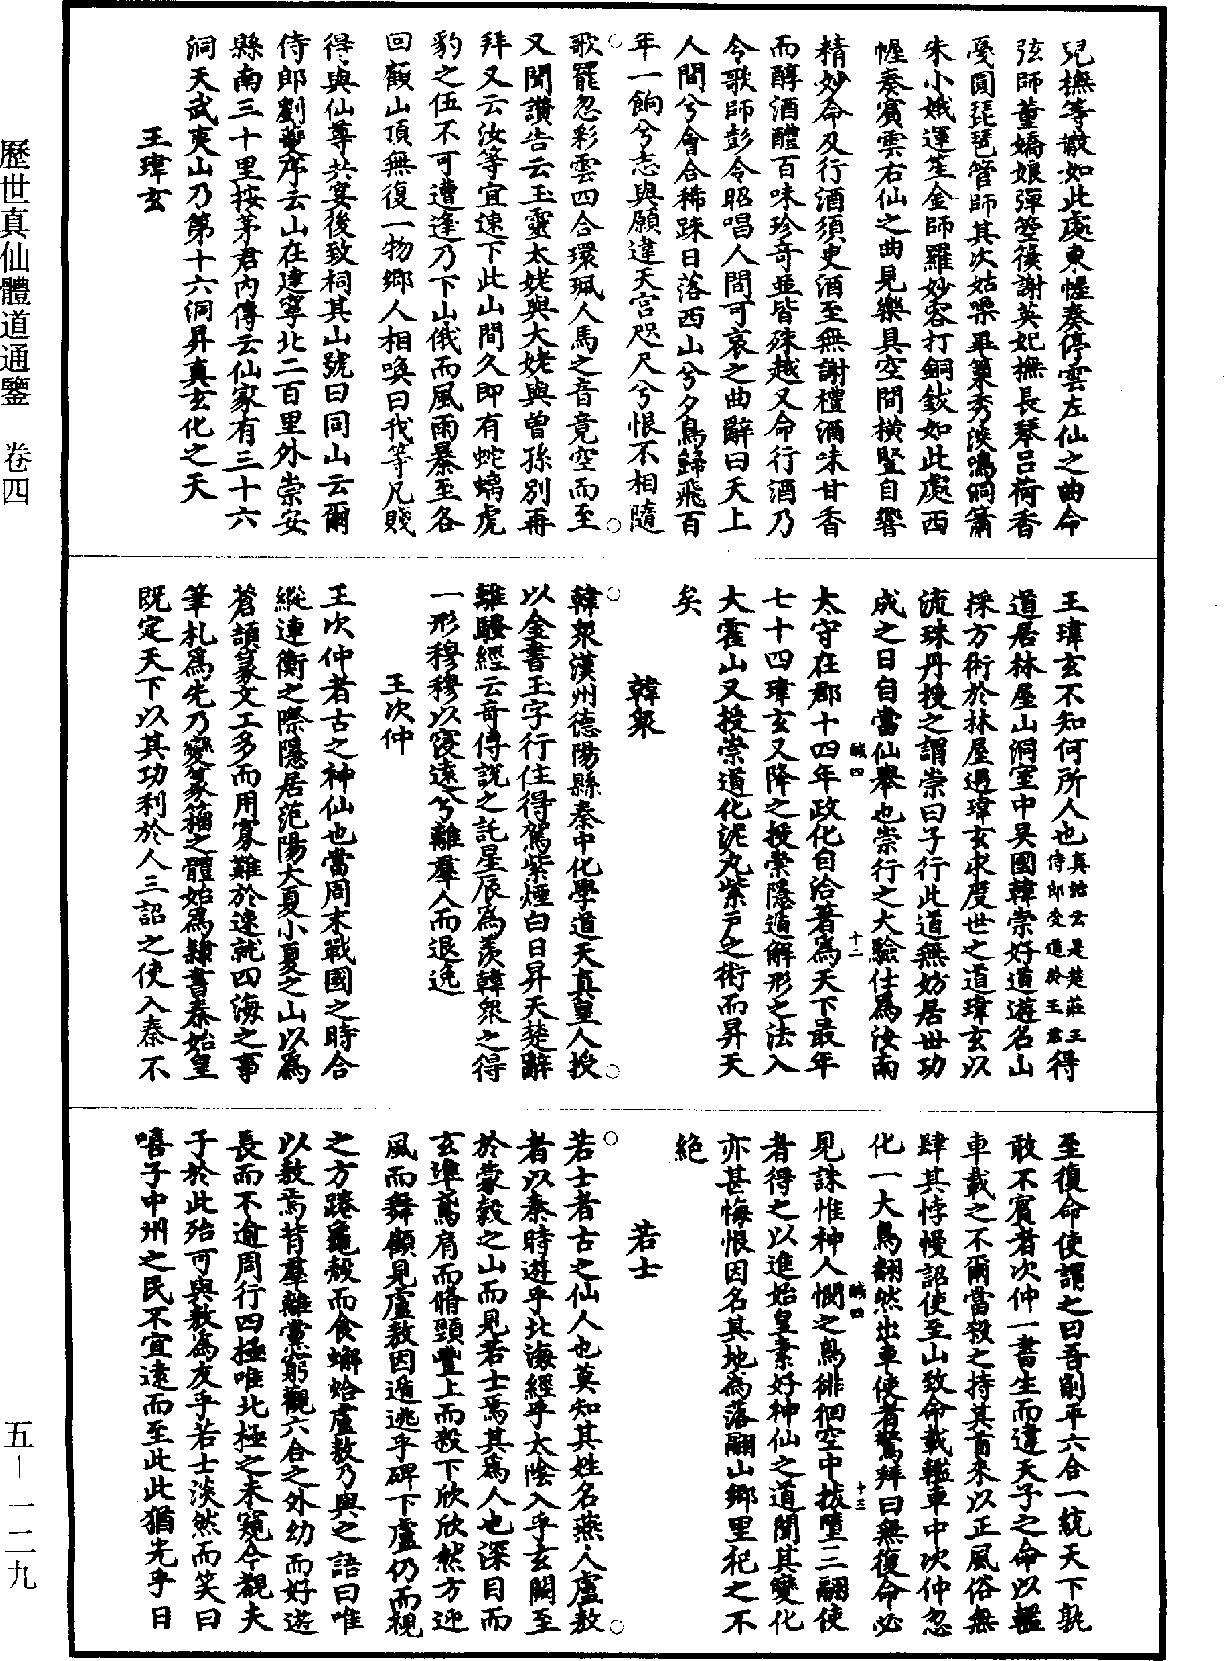 歷世真仙體道通鑒　卷四
兒撫等皷如此處東幄奏停雲左仙之曲命
弦師董嬌娘彈箜篌謝英妃撫長琴呂荷香
戞圓琵琶管師其次姑噪畢篥秀淡鳴洞簫
朱小娥運笙金師羅妙容打銅鈸如此處西
幄奏賓雲右仙之曲見樂具空間橫豎自響
精妙命及行酒須臾酒至無謝禮酒味甘香
而醇酒醴百味珍奇並皆殊越又命行酒乃
令歌師彭令昭唱人間可哀之曲辭曰天上
人間兮會合稀踈日落西山兮夕鳥歸飛百
年一餉兮志與願違天宮咫尺兮恨不相隨
歌罷忽彩雲四合環珮人馬之音竟空而至
又聞讚告云玉靈太姥與大姥與曾孫別再
拜又云汝等宜速下此山間久即有蛇螭虎
豹之伍不可遭逢乃下山俄而風雨暴至各
回顧山頂無復一物鄉人相喚曰我等凡賤
得與仙尊共宴後致祠其山號曰同山云爾
侍郎劉夔序云山在建寧北二百里外崇安
縣南三十里按茅君內傳云仙家有三十六
洞天武夷山乃第十六洞昇真玄化之天
王瑋玄
王瑋玄不知何所人也真誥云是楚莊王侍郎受道於王君得
道居林屋山洞室中吳國韓崇好道遊名山
採方術於林屋遇瑋玄求度世之道瑋玄以
流珠丹授之謂崇曰子行此道無妨居世功
成之日自當仙舉也崇行之大驗仕為汝南
太守在郡十四年政化自洽著為天下最年
七十四瑋玄又降之授崇隱遁解形之法入
大霍山又授崇道化泥丸紫戶之術而昇天
矣
韓眾
韓眾漢州德陽縣秦中化學道天真皇人授
以金書玉字行住得駕紫煙白日昇天楚辭
離騷經云奇傅說之託星辰為羨韓眾之得
一形穆穆以寖遠兮離羣人而退逸
王次仲
王次仲者古之神仙也當周末戰國之時合
縱連衡之際隱居范陽大夏小夏之山以為
蒼頡篆文工多而用寡難於速就四海之事
筆札為先乃變篆籀之體始為隸書秦始皇
既定天下以其功利於人三詔之使入秦不
至復命使謂之曰吾削平六合一統天下孰
敢不賓者次仲一書生而違天子之命以轞
車載之不爾當殺之持其首來以正風俗無
肆其悖慢詔使至山致命載轞車中次仲忽
化一大鳥翻然出車使者驚拜曰無復命必
見誅惟神人憫之鳥徘徊空中故墮三翮使
者得之以進始皇素好神仙之道聞其變化
亦甚悔恨因名其地為落翮山鄉里祀之不
絕
若士
若士者古之仙人也莫知其姓名燕人盧敖
者以秦時遊乎北海經乎太陰入乎玄闕至
於蒙穀之山而見若士焉其為人也深目而
玄準鳶肩而脩頸豐上而殺下欣欣然方迎
風而舞顧見盧敖因遁逃乎碑下盧仍而視
之方踡龜殼而食蠏蛤盧敖乃與之語曰唯
以敖焉背羣離黨窮觀六合之外幼而好遊
長而不逾周行四極唯北極之未窺今覩夫
子於此殆可與敖為友乎若士淡然而笑曰
嘻子中州之民不宜遠而至此此猶光乎日
鹹四
十二
鹹四
十三
五—一二九